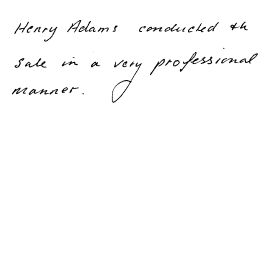 Henry Adams conducted th
sale in a very professional
manner.